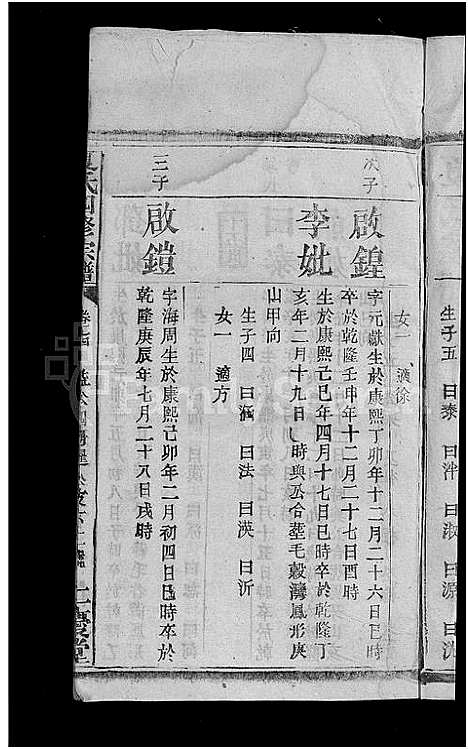 生子五 曰泰 曰泮 曰淑 曰源
女一 適徐
次子
啟鍠
字元獻生於康熙丁卯年十二月二十六日巳時
卒於乾隆壬申年十二月二十七日酉時
李妣
生於康熙己巳年四月十七日巳時卒於乾隆丁
亥年二月十九日 時與公合塟毛穀灣鳳形庚
山甲向
生子四 曰 曰法 曰渶 曰沂
女一 適方
三子
啟鎧
字海周生於康熙己卯年二月初四日巳時卒於
乾隆庚辰年七月二十八日戌時
氏四修宗譜